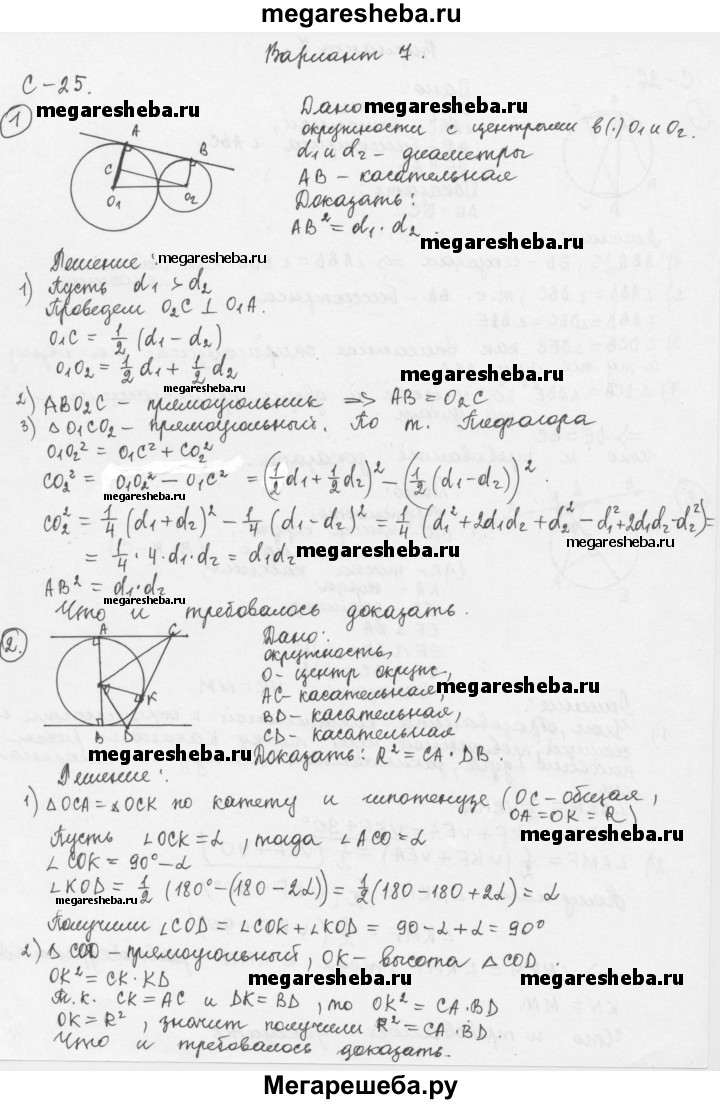 megaresheba.ru
Вариант 7.
С-25.
megaresheba.ru
megaresheba.ru
1
A
B
C
O1
O2
Дано
окружности с центрами в (·) O1 и O2.
d1 и d2 – диаметры
AB – касательная
Доказать:
AB² = d1 · d2.
megaresheba.ru
Решение:
megaresheba.ru
1) Пусть d1 > d2
Проведем O2C ⊥ O1A.
O1C = 1/2 (d1 – d2)
O1O2 = 1/2 d1 + 1/2 d2
megaresheba.ru
2) ABO2C – прямоугольник ⇒ AB = O2C
3) △O1CO2 – прямоугольный. По т. Пифагора
O1O2² = O1C² + CO2²
CO2² = O1O2² – O1C² = (1/2 d1 + 1/2 d2)² – (1/2 (d1 – d2))².
megaresheba.ru
CO2² = 1/4 (d1 + d2)² – 1/4 (d1 – d2)² = 1/4 (d1² + 2d1d2 + d2² – d1² + 2d1d2 – d2²) =
megaresheba.ru
= 1/4 · 4 · d1 · d2 = d1d2
megaresheba.ru
AB² = d1 · d2
megaresheba.ru
Что и требовалось доказать.
2.
A
C
K
B
D
Дано:
окружность,
O – центр окруж.,
AC – касательная,
megaresheba.ru
BD – касательная,
CD – касательная
megaresheba.ru
Доказать: R² = CA · DB.
Решение:
1) △OCA = △OCK по катету и гипотенузе (OC – общая,
OA = OK = R)
Пусть ∠OCK = α, тогда ∠ACO = α
megaresheba.ru
∠COK = 90° – α
∠KOD = 1/2 (180° – (180 – 2α)) = 1/2 (180 – 180 + 2α) = α
megaresheba.ru
Получили ∠COD = ∠COK + ∠KOD = 90 – α + α = 90°
2) △COD – прямоугольный, OK – высота △COD.
megaresheba.ru
megaresheba.ru
OK² = CK · KD
Т.к. CK = AC и DK = BD, то OK² = CA · BD
OK = R², значит получили R² = CA · BD.
megaresheba.ru
Что и требовалось доказать.
Мегарешеба.ру